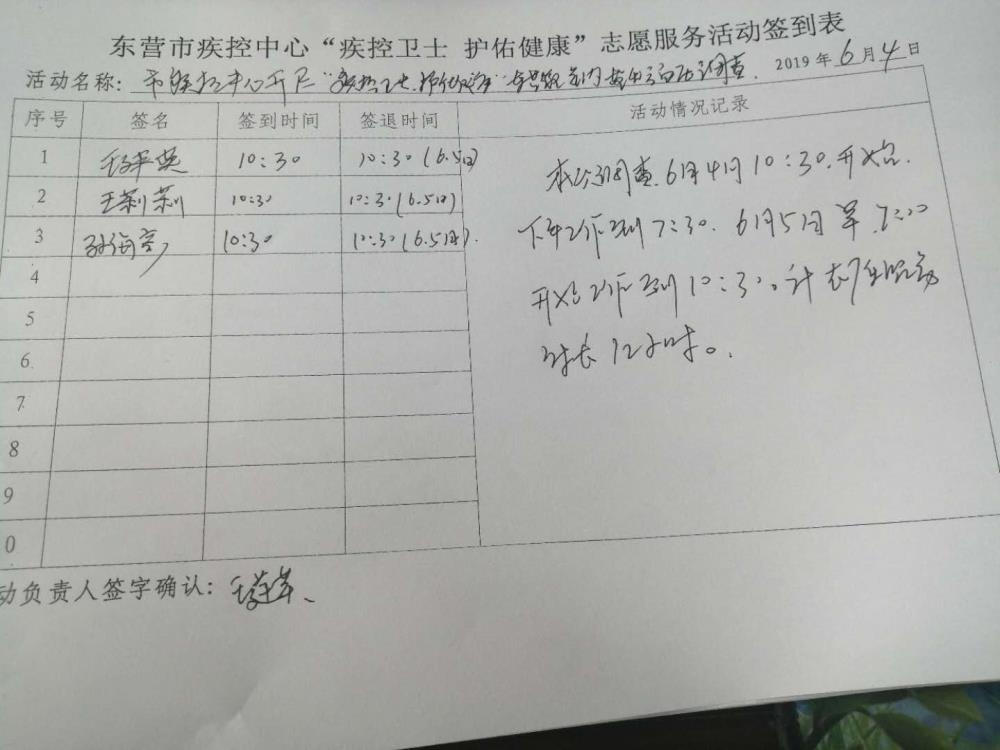 东营市疾控中心“疾控卫士 护佑健康”志愿服务活动签到表
活动名称：市疾控中心开展“疾控卫士、护佑健康” 调查. 2019年6月4日
序号 签名 签到时间 签退时间 活动情况记录
1 10:30 10:30(6.5日)
2 王莉莉 10:30 10:30(6.5日)
3 孙海亮 10:30 10:30(6.5日).
4
5
6
7
8
9
0
本次调查.6月4日10:30.开始.
下午工作到7:30. 6月5日早.7:00
开始工作到10:30。计志愿服务
时长12小时。
动负责人签字确认：